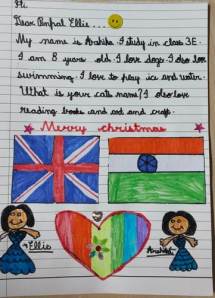 Hi,
Dear Penpal Ellie ....
My name is Anshika I study in class 3E.
I am 8 years old. I love dogs. I also love
swimming. I love to play ice and water.
What is your cats name? I also love
reading books and art and craft.
Merry christmas
Ellie